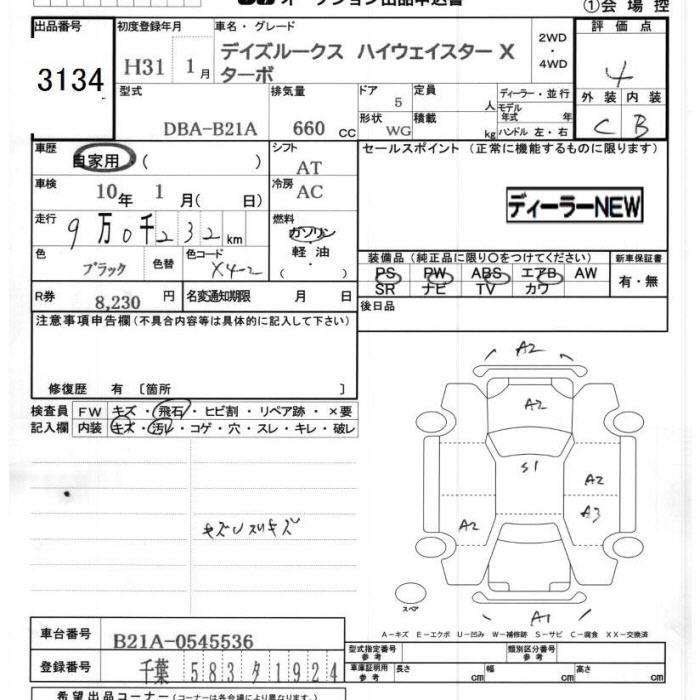 オークション出品申込書
①会場控
出品番号
3134
初度登録年月
H31 1月
車名・グレード
デイズルークス ハイウェイスター X
ターボ
2WD
・
4WD
評価点
4
外装 内装
C B
型式
DBA-B21A
排気量
660 CC
ドア 5
形状 WG
定員 人
積載 kg
ディーラー・並行
モデル年式 年
ハンドル 左・右
車歴
自家用 ( )
シフト
AT
車検
10年 1月( 日)
冷房
AC
走行
9万0千232km
燃料
ガソリン
・
軽油
・
( )
色
ブラック
色替
色コード
X4-2
R券
8,230 円
名変通知期限 月 日
セールスポイント (正常に機能するものに限ります)
ディーラーNEW
装備品 (純正品に限り○をつけてください)
PS PW ABS エアB AW
SR ナビ TV カワ
新車保証書
有・無
後日品
注意事項申告欄 (不具合内容等は具体的に記入して下さい)
修復歴 有 [箇所 ]
検査員
記入欄
FW キズ・飛石・ヒビ割・リペア跡・×要
内装 キズ・汚レ・コゲ・穴・スレ・キレ・破レ
A2
A2
S1
A2
A2
A3
A1
スペア
A-キズ E-エクボ U-凹み W-補修跡 S-サビ C-腐食 XX-交換済
車台番号
B21A-0545536
登録番号
千葉 583 タ 1924
型式指定番号
参考
類別区分番号
参考
車庫証明用
参考
長さ cm
幅 cm
高さ cm
希望出品コーナー (コーナーは各会場により異なります)